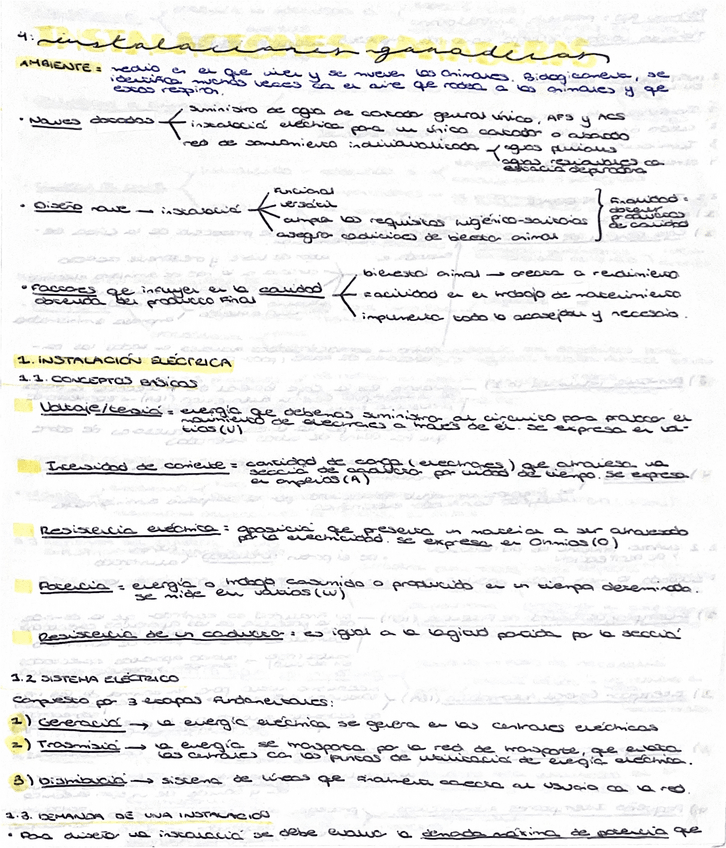 4. instalaciones ganaderas
AMBIENTE = medio en el que viven y se mueven los animales. Biológicamente, se
identifica muchas veces con el aire que rodea a los animales y que
estos respiran.
• Naves dotadas
suministro de agua de contador general único, AFS y ACS
instalación eléctrica para un único contador o abonado
red de saneamiento individualizada
aguas pluviales
aguas residuales con
estación depuradora
• Diseño nave → instalación
Funcional
versátil
cumpla los requisitos higiénico-sanitarios
asegura condiciones de bienestar animal
Finalidad =
obtener
productos
de calidad
• Factores que influyen en la calidad
obtenida del producto final
bienestar animal → orienta a rendimiento
Facilidad en el trabajo de mantenimiento
implementa todo lo aconsejable y necesario.
1. INSTALACIÓN ELÉCTRICA
1.1. CONCEPTOS BÁSICOS
Voltaje/tensión = energía que debemos suministrar al circuito para producir el
movimiento de electrones a través de él. Se expresa en vol-
tios (V)
Intensidad de corriente = cantidad de carga (electrones) que atraviesa una
sección de conductor por unidad de tiempo. Se expresa
en amperios (A)
Resistencia eléctrica = oposición que presenta un material a ser atravesado
por la electricidad. Se expresa en Ohmios (O)
Potencia = energía o trabajo consumido o producido en un tiempo determinado.
se mide en vatios (W)
Resistencia de un conductor = es igual a la longitud partida por la sección
1.2 SISTEMA ELÉCTRICO
Compuesto por 3 etapas fundamentales:
1) Generación → la energía eléctrica se genera en las centrales eléctricas
2) Trasmisión → la energía se transporta por la red de transporte, que enlaza
las centrales con los puntos de utilización de energía eléctrica.
3) Distribución → sistema de líneas que finalmente conecta al usuario con la red.
1.3. DEMANDA DE UNA INSTALACIÓN
• Para diseñar una instalación se debe evaluar la demanda máxima de potencia que